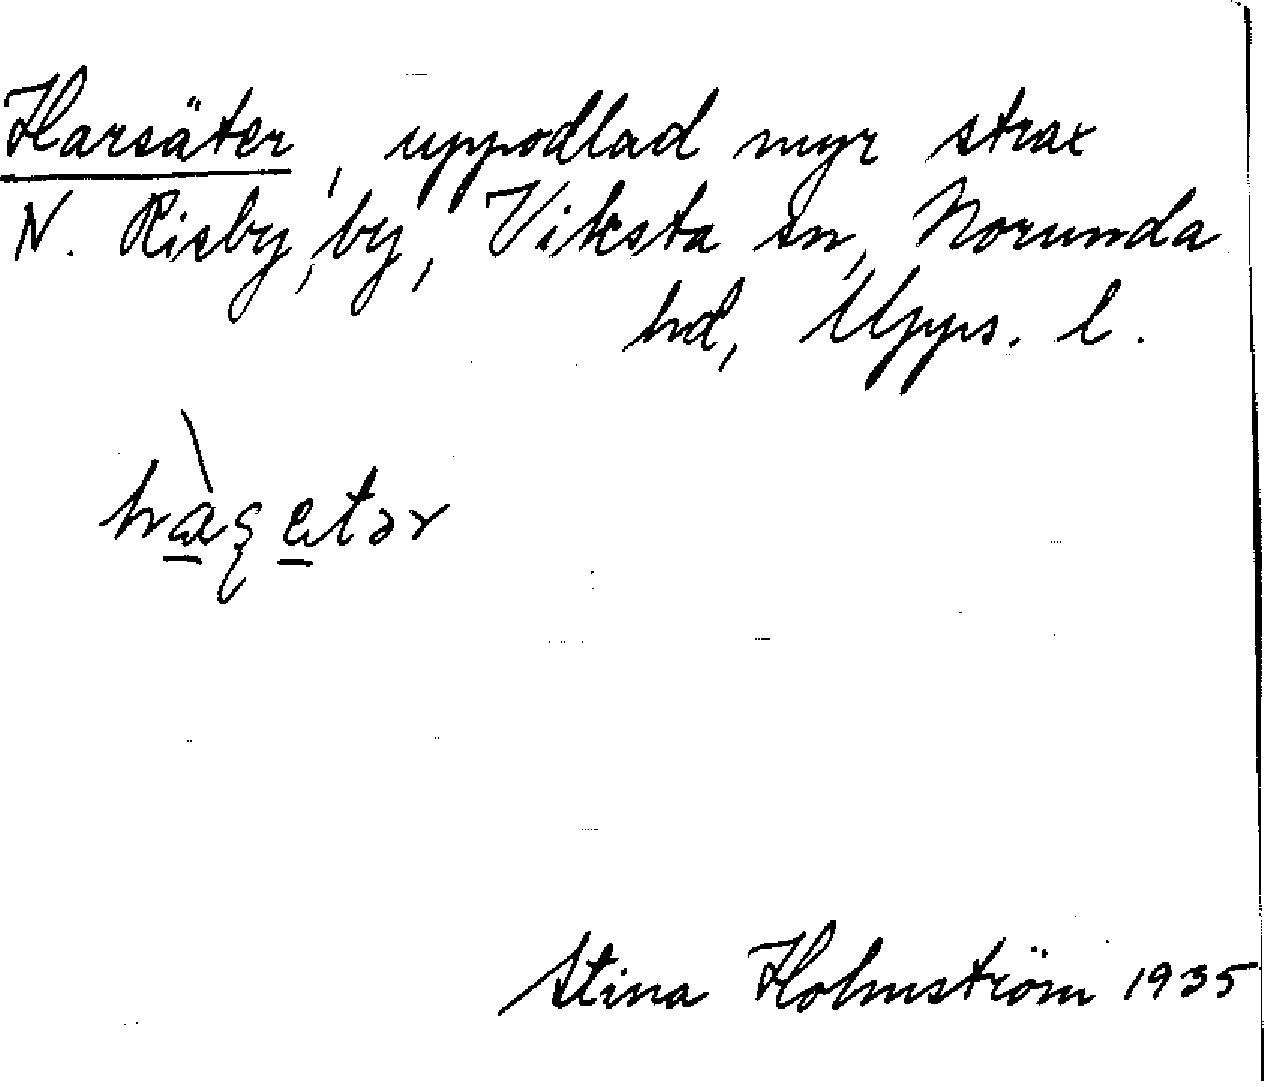 Harsäter, uppodlad myr strax
N. Risby, by, Viksta sn, Norunda
hd, Upps. l.
Stina Holmström 1935